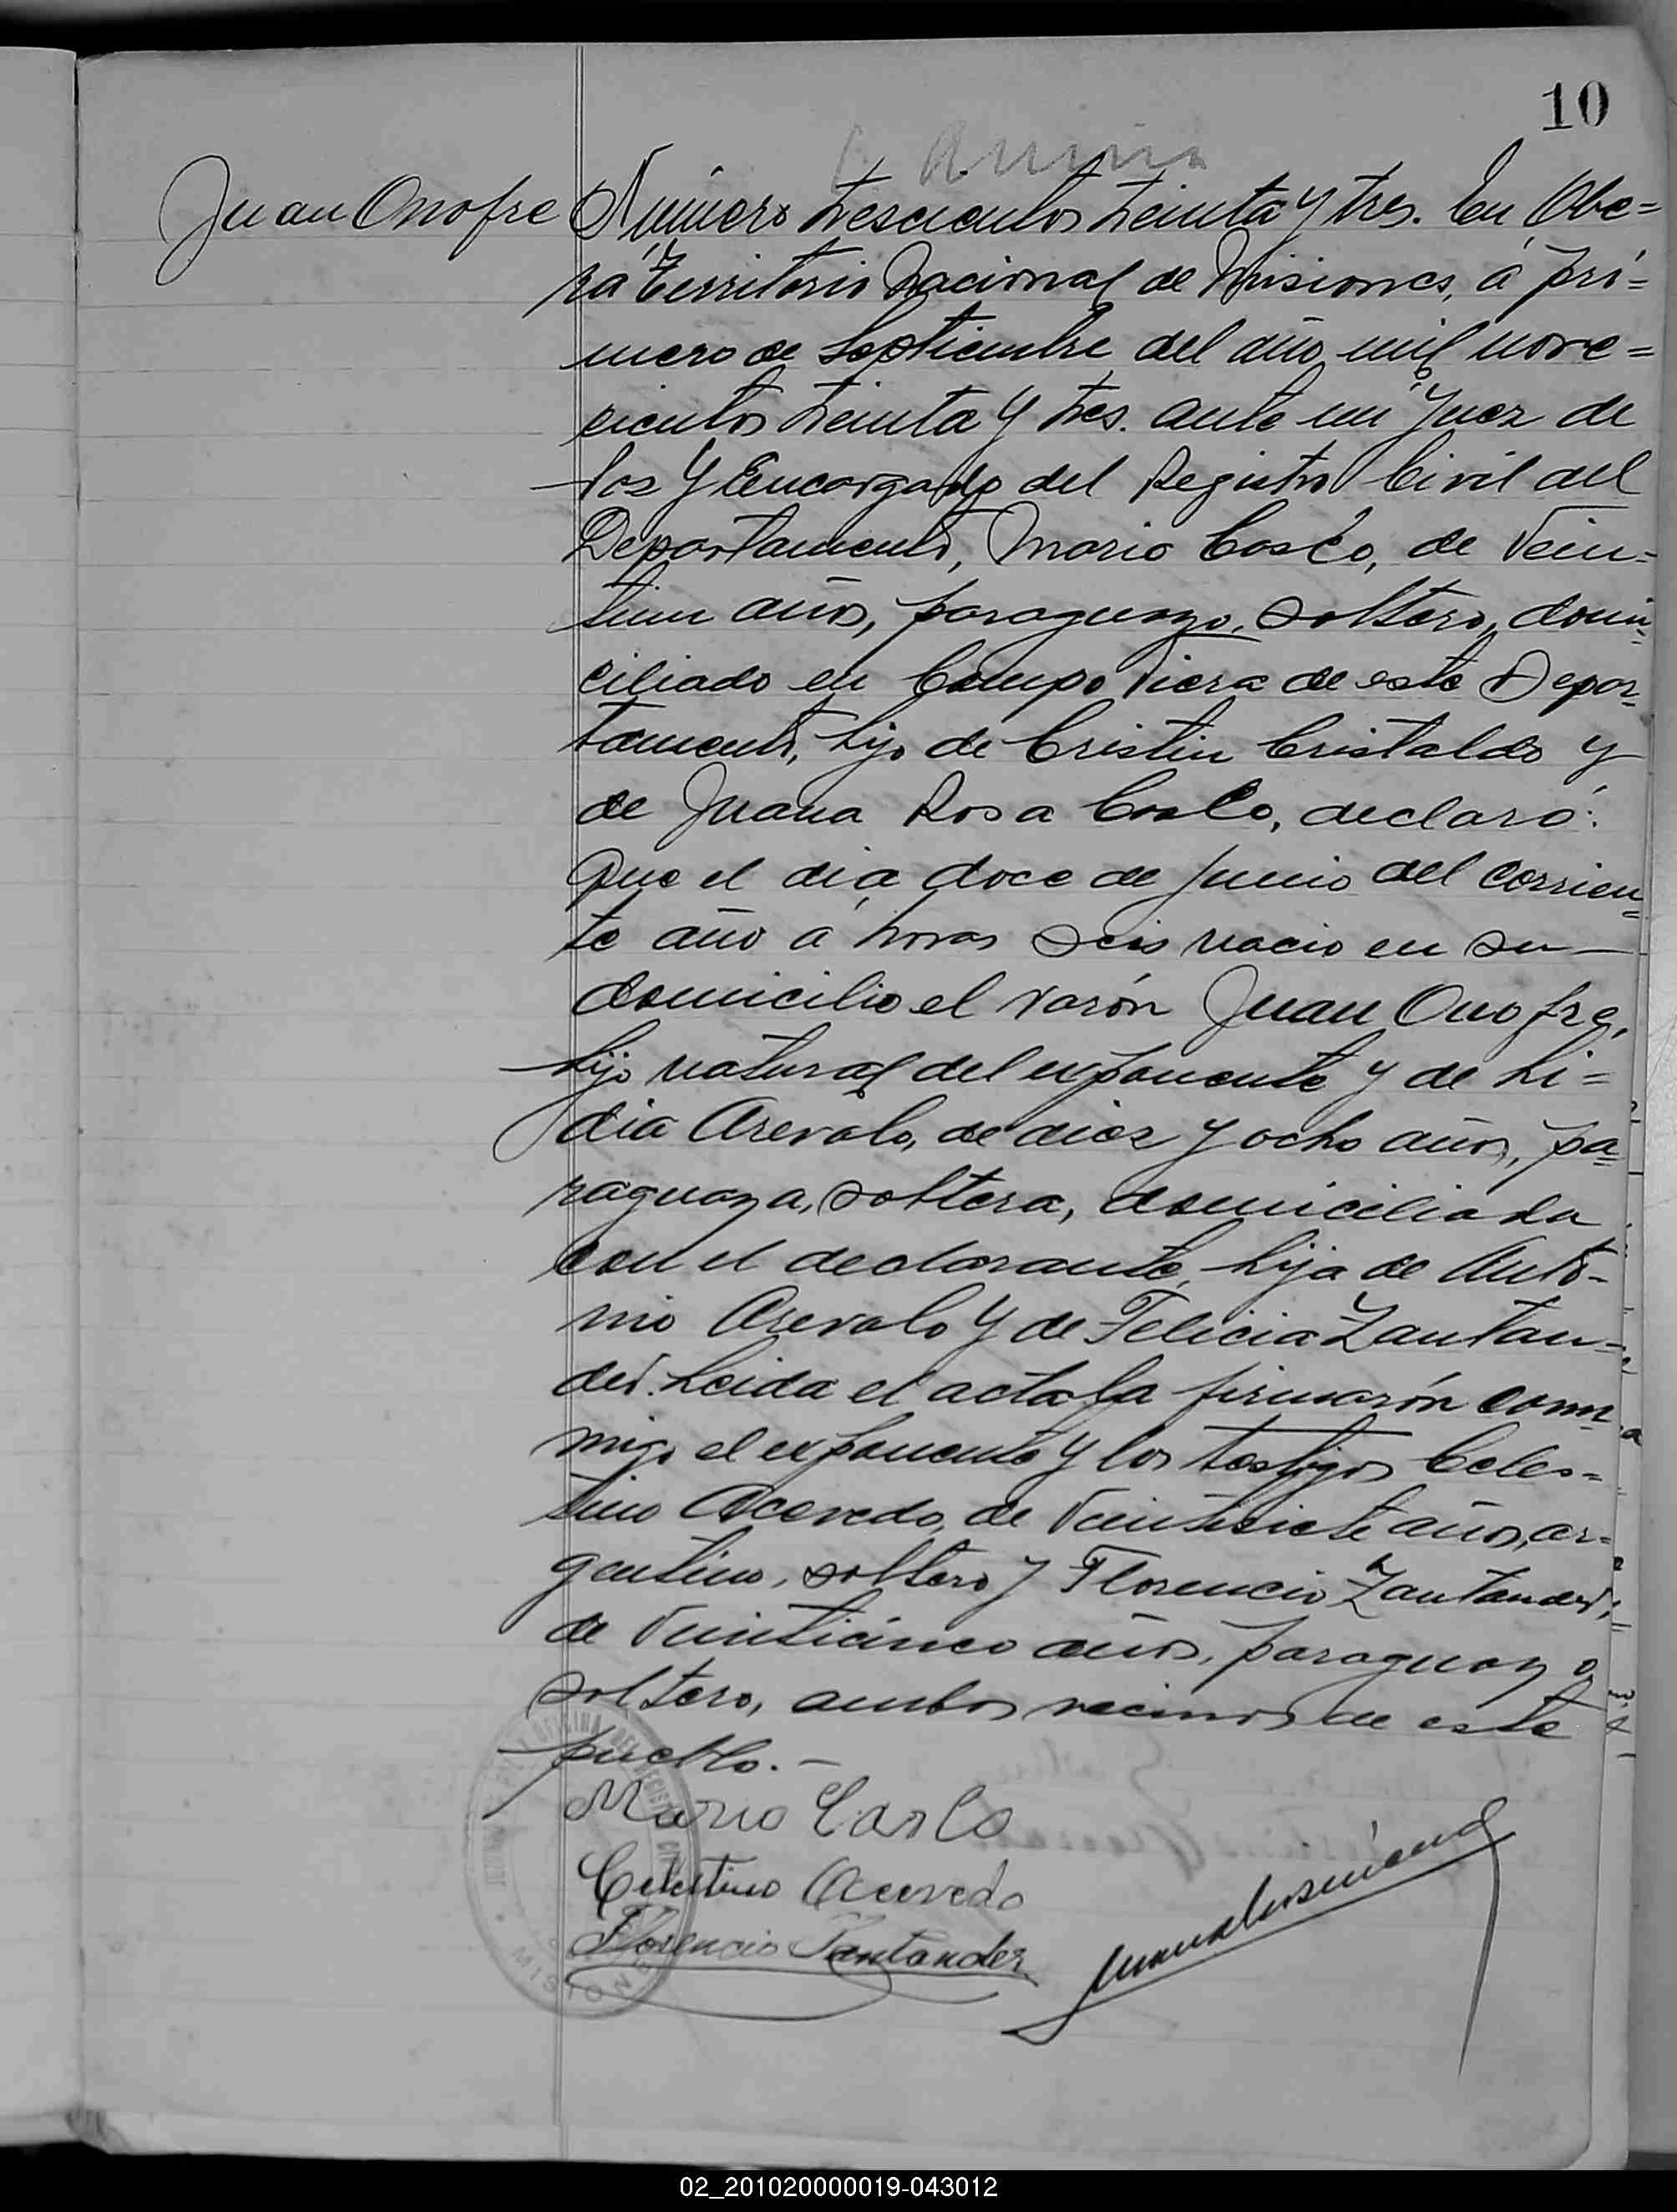 10
Juan Onofre
Número trescientos treinta y tres. En Obe=
rá Territorio Nacional de Misiones, á pri=
mero de Septiembre del año mil nove=
cientos treinta y tres. ante mi Juez de
Paz y Encargado del Registro Civil del
Departamento, Mario Casco, de Vein=
tiun años, paraguayo, soltero, domi=
ciliado en Campo Viera de este Depar=
tamento, hijo de Cristin Cristaldo y
de Juana Rosa Casco, declaró:
Que el dia doce de Junio del corrien=
te año á horas seis nacio en su
domicilio el varón Juan Onofre,
hijo natural del exponente y de Li=
dia Arevalo, de diez y ocho años, pa=
raguaya, soltera, domiciliada
con el declarante, hija de Anto-
nio Arevalo y de Felicia Zantan=
der. Leida el acta la firmarón conm
migo el exponente y los testigos Celes=
tino Acevedo, de Veintisiete años, ar=
gentino, soltero y Florencio Zantander,
de Veinticinco años, paraguayo,
soltero, ambos vecinos de este
pueblo.-
Mario Casco
Celestino Acevedo
Florencio Santander
MISIONES
02_201020000019-043012